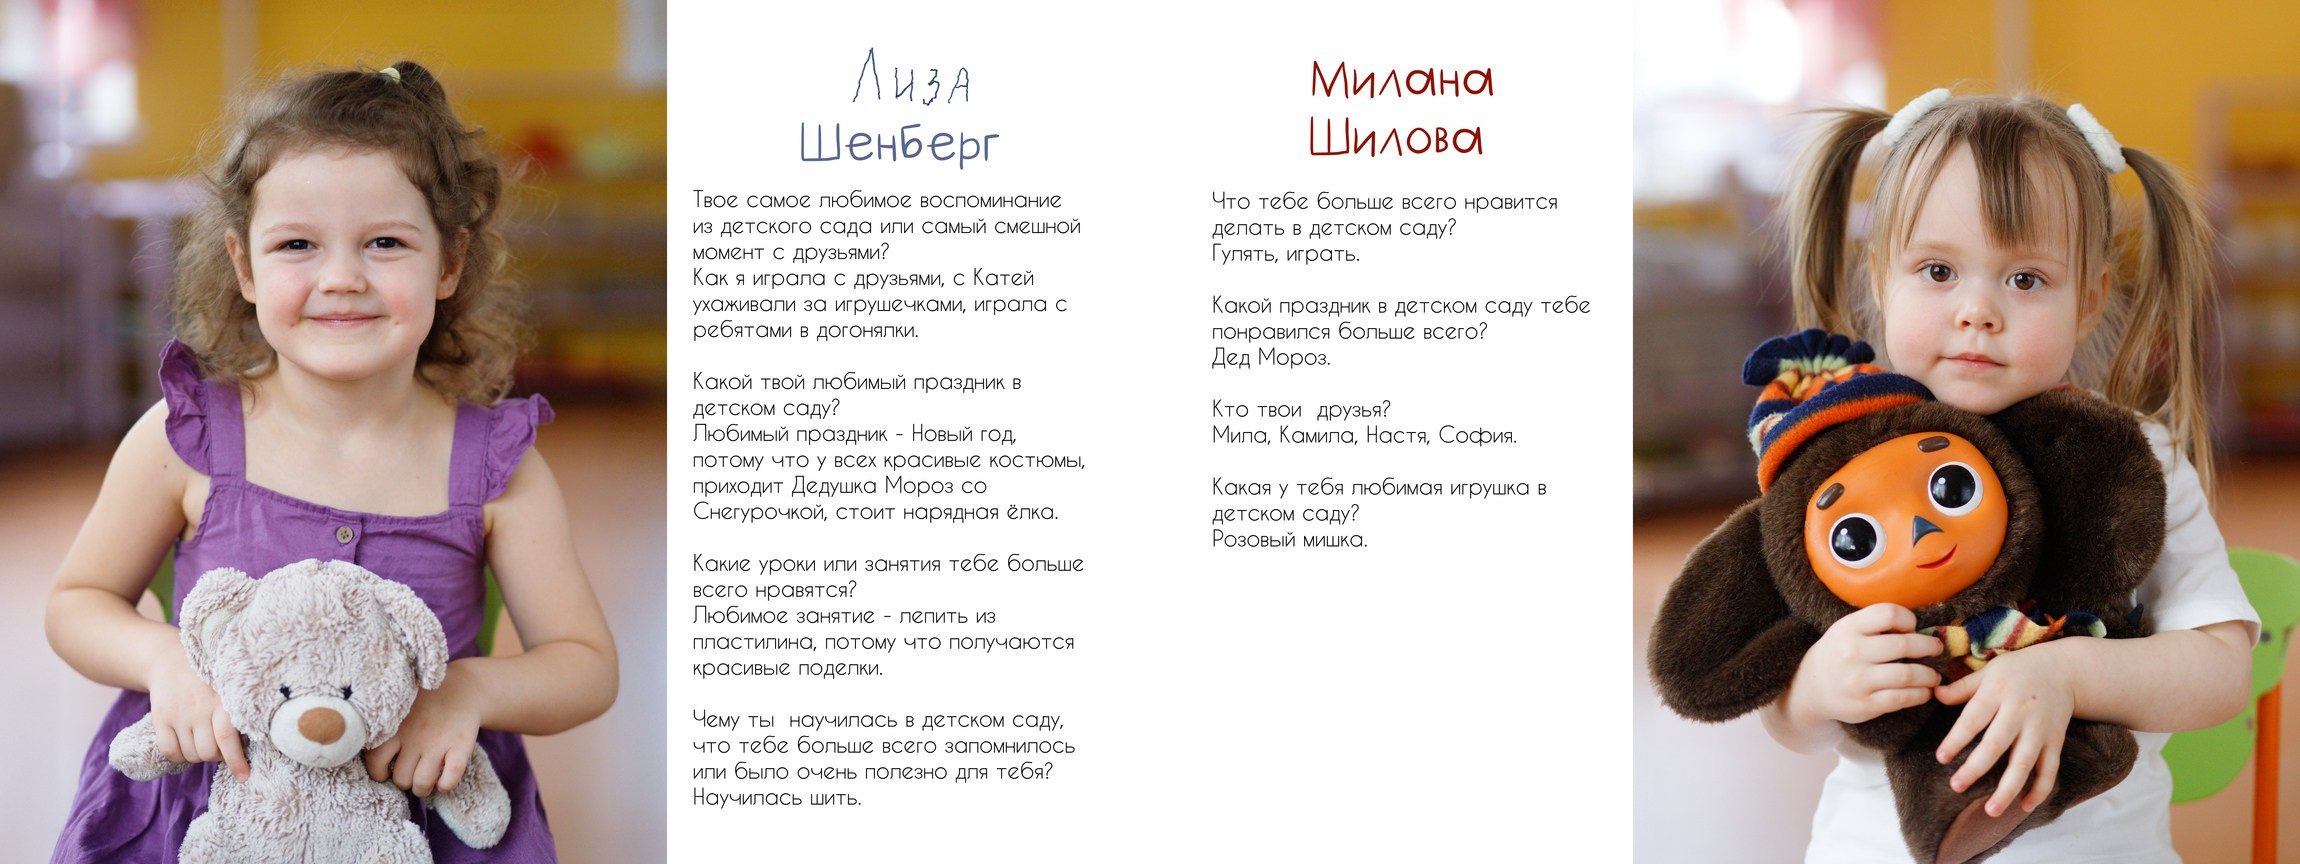 Лиза
Шенберг
Твое самое любимое воспоминание
из детского сада или самый смешной
момент с друзьями?
Как я играла с друзьями, с Катей
ухаживали за игрушечками, играла с
ребятами в догонялки.
Какой твой любимый праздник в
детском саду?
Любимый праздник - Новый год,
потому что у всех красивые костюмы,
приходит Дедушка Мороз со
Снегурочкой, стоит нарядная ёлка.
Какие уроки или занятия тебе больше
всего нравятся?
Любимое занятие - лепить из
пластилина, потому что получаются
красивые поделки.
Чему ты  научилась в детском саду,
что тебе больше всего запомнилось
или было очень полезно для тебя?
Научилась шить.
Милана
Шилова
Что тебе больше всего нравится
делать в детском саду?
Гулять, играть.
Какой праздник в детском саду тебе
понравился больше всего?
Дед Мороз.
Кто твои  друзья?
Мила, Камила, Настя, София.
Какая у тебя любимая игрушка в
детском саду?
Розовый мишка.